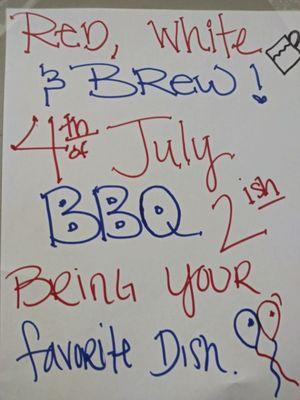 RED, WHITE
& BREW!
4th of July
BBQ 2ish
BRING YOUR
favorite Dish.